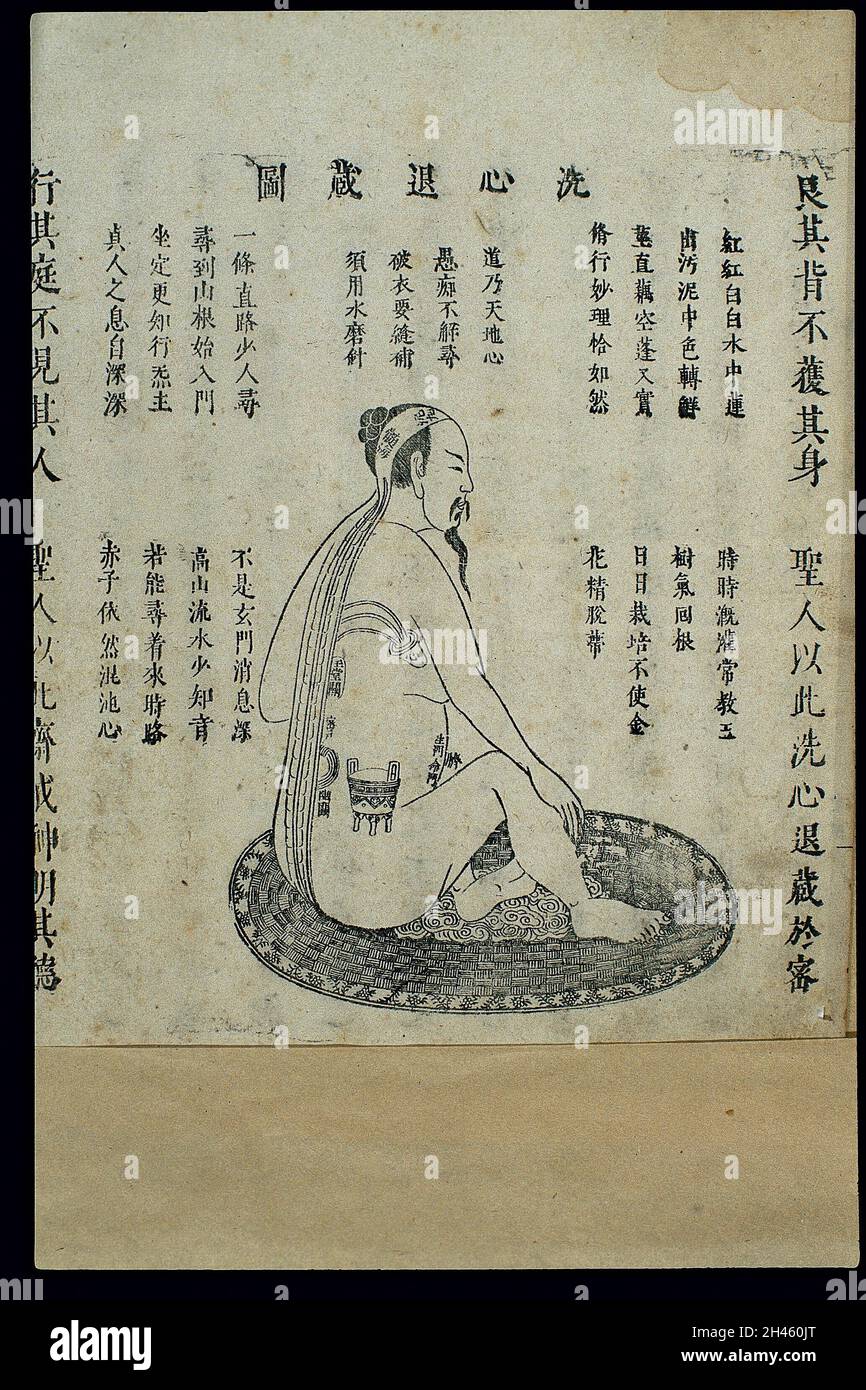 洗心退蔵圖
艮其背不獲其身
聖人以此洗心退藏於密
紅紅白白水中蓮
出污泥中色轉鮮
莖直藕空蓬又實
脩行妙理恰如然
時時溉灌常教玉
樹氣回根
日日栽培不使金
花精脫蒂
道乃天地心
愚痴不解尋
破衣要縫補
須用水磨針
一條直路少人尋
尋到山根始入門
坐定更知行炁主
真人之息自深深
不是玄門消息深
高山流水少知音
若能尋着來時路
赤子依然混沌心
行其庭不見其人
聖人以此齋戒神明其德
生門
臍
alamy
Image ID: 2H460JT
www.alamy.com